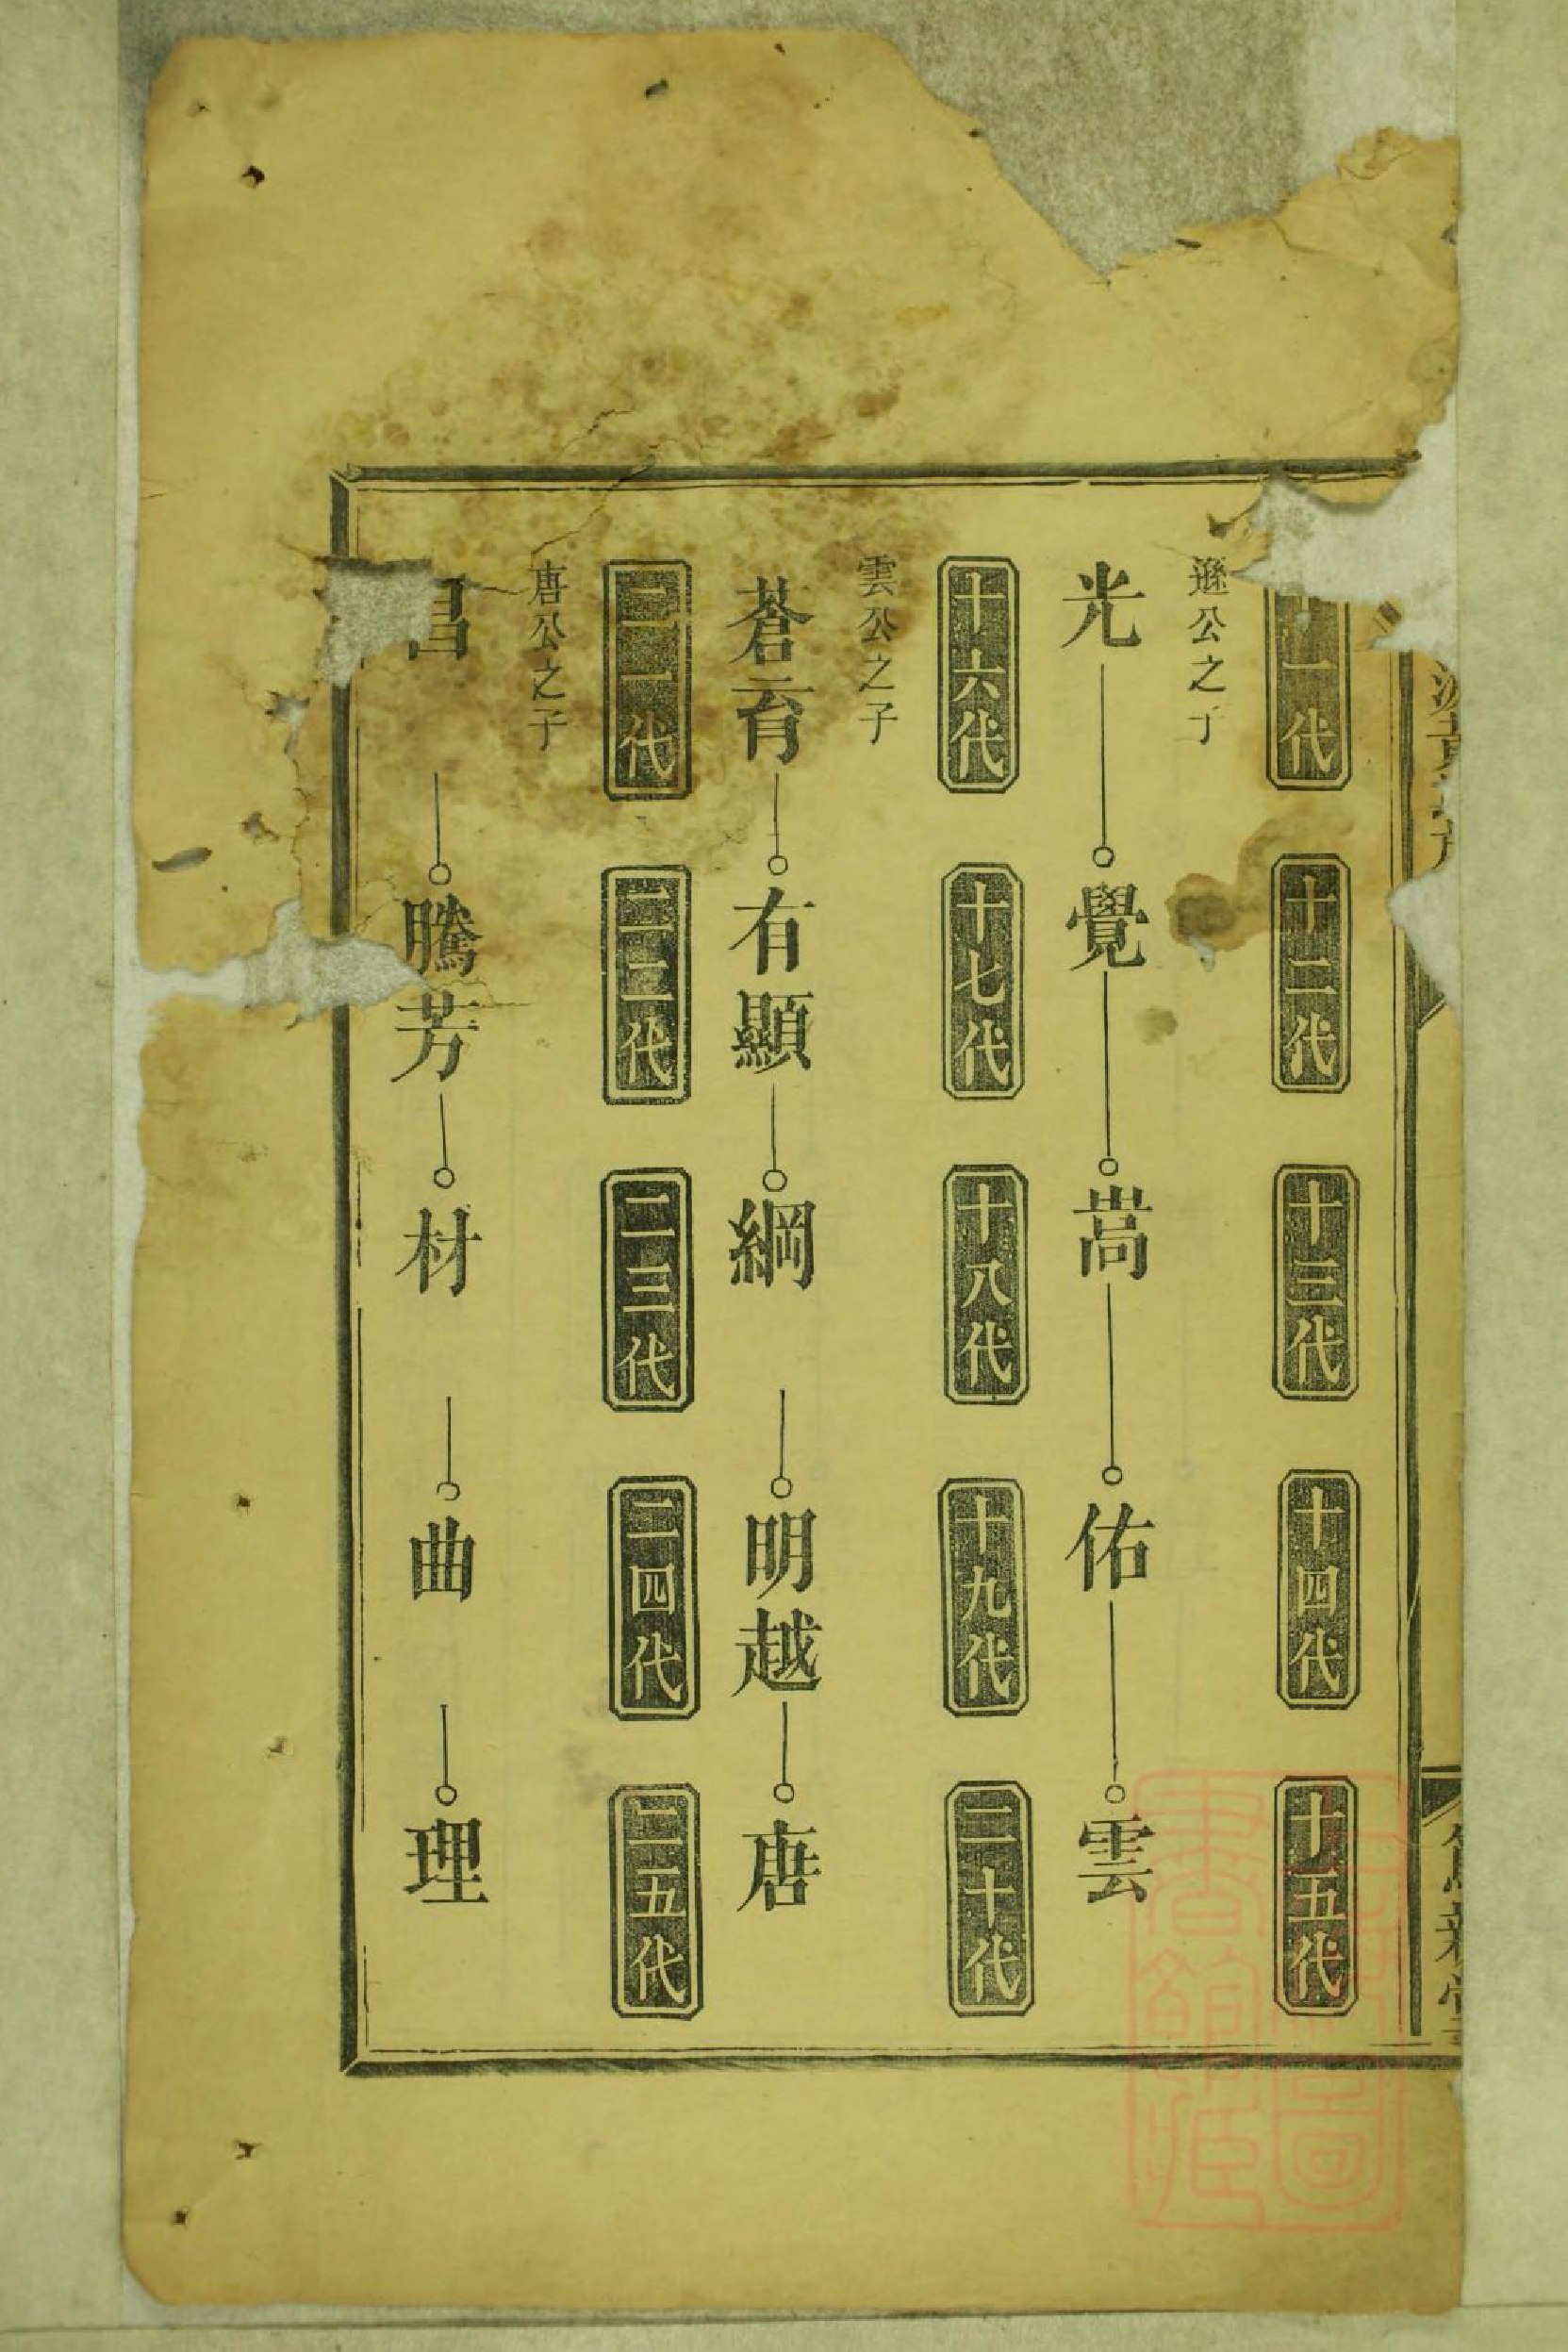 十一代 十二代 十三代 十四代 十五代
遜公之子
光 覺 嵩 佑 雲
十六代 十七代 十八代 十九代 二十代
雲公之子
蒼育 有顯 綱 明越 唐
二一代 二二代 二三代 二四代 二五代
唐公之子
昌 騰芳 材 曲 理